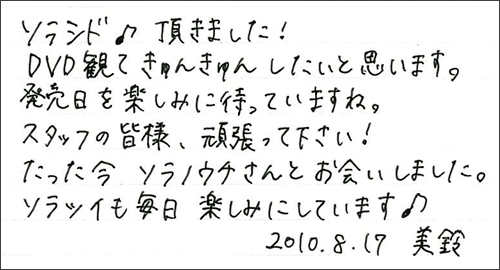 ソラシド♪ 頂きました!
DVD観てきゅんきゅんしたいと思います。
発売日を楽しみに待っていますね。
スタッフの皆様、頑張って下さい!
たった今 ソラノウチさんとお会いしました。
ソラツイも毎日 楽しみにしています♪
2010.8.17 美鈴